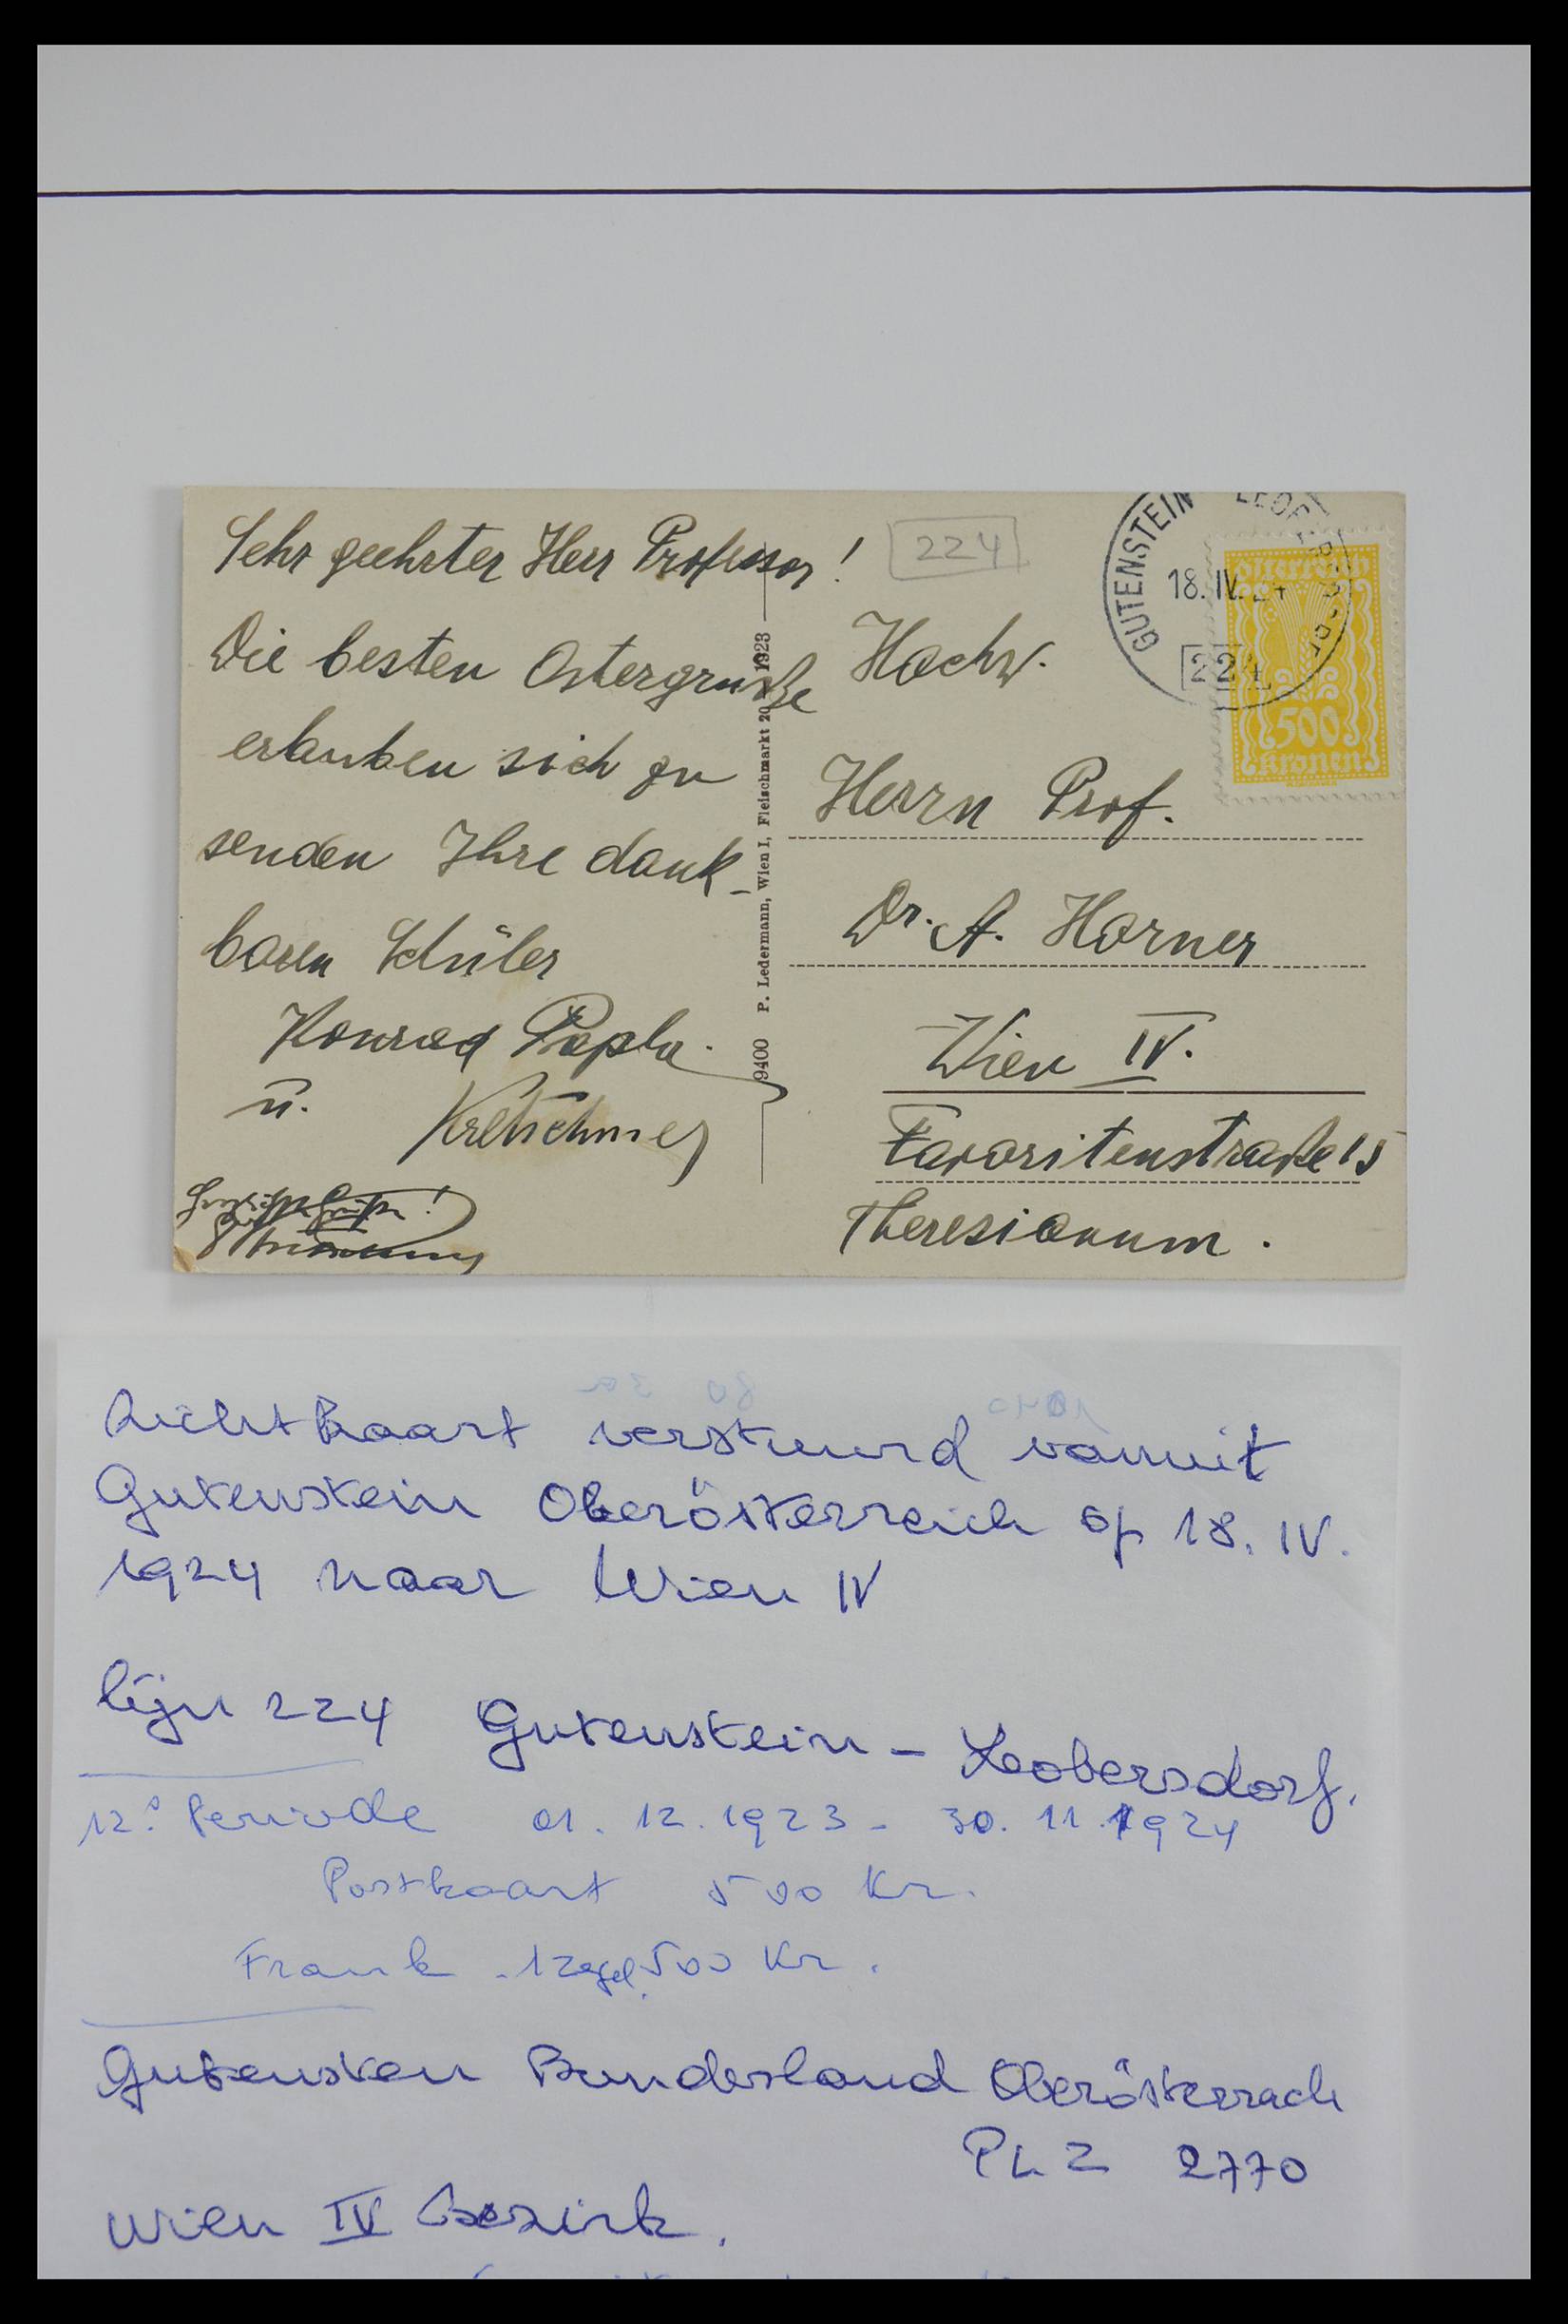 Sehr geehrter Herr Professor!
Die besten Ostergrüße
erlauben sich zu
senden Ihre dank-
baren Schüler
Konrad
u. Kretschmer
9400 P. Ledermann, Wien I, Fleischmarkt 20 1923
224
GUTENSTEIN
18. IV. 24
224
Österreich
500
Kronen
Hochw.
Herrn Prof.
Dr. A. Horner
Wien IV.
Favoritenstraße 15
Theresianum.
Zichtkaart verstuurd vanuit
Gutenstein Oberösterreich op 18. IV.
1924 naar Wien IV
lijn 224 Gutenstein - Leobersdorf.
12e Periode 01. 12. 1923 - 30. 11. 1924
Postkaart 500 Kr.
Frank. 1 zegel 500 Kr.
Gutenstein Bundesland Oberösterreich
PLZ 2770
Wien IV Bezirk.